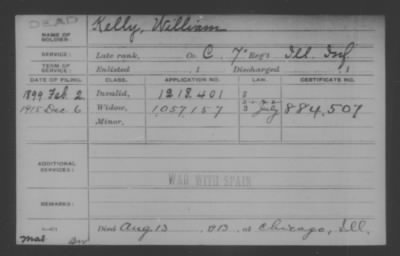 DEAD
NAME OF SOLDIER: Kelly, William
SERVICE: Late rank, Co. C, 7" Reg't Ill. Inf
TERM OF SERVICE: Enlisted , 1 Discharged , 1
DATE OF FILING. CLASS. APPLICATION NO. LAW. CERTIFICATE NO.
1899 Feb. 2 Invalid, 1218.401
1915 Dec 6 Widow, 1,057,157 July 884,507
Minor,
ADDITIONAL SERVICES:
WAR WITH SPAIN
REMARKS:
Died Aug 13 1913, at Chicago, Ill.